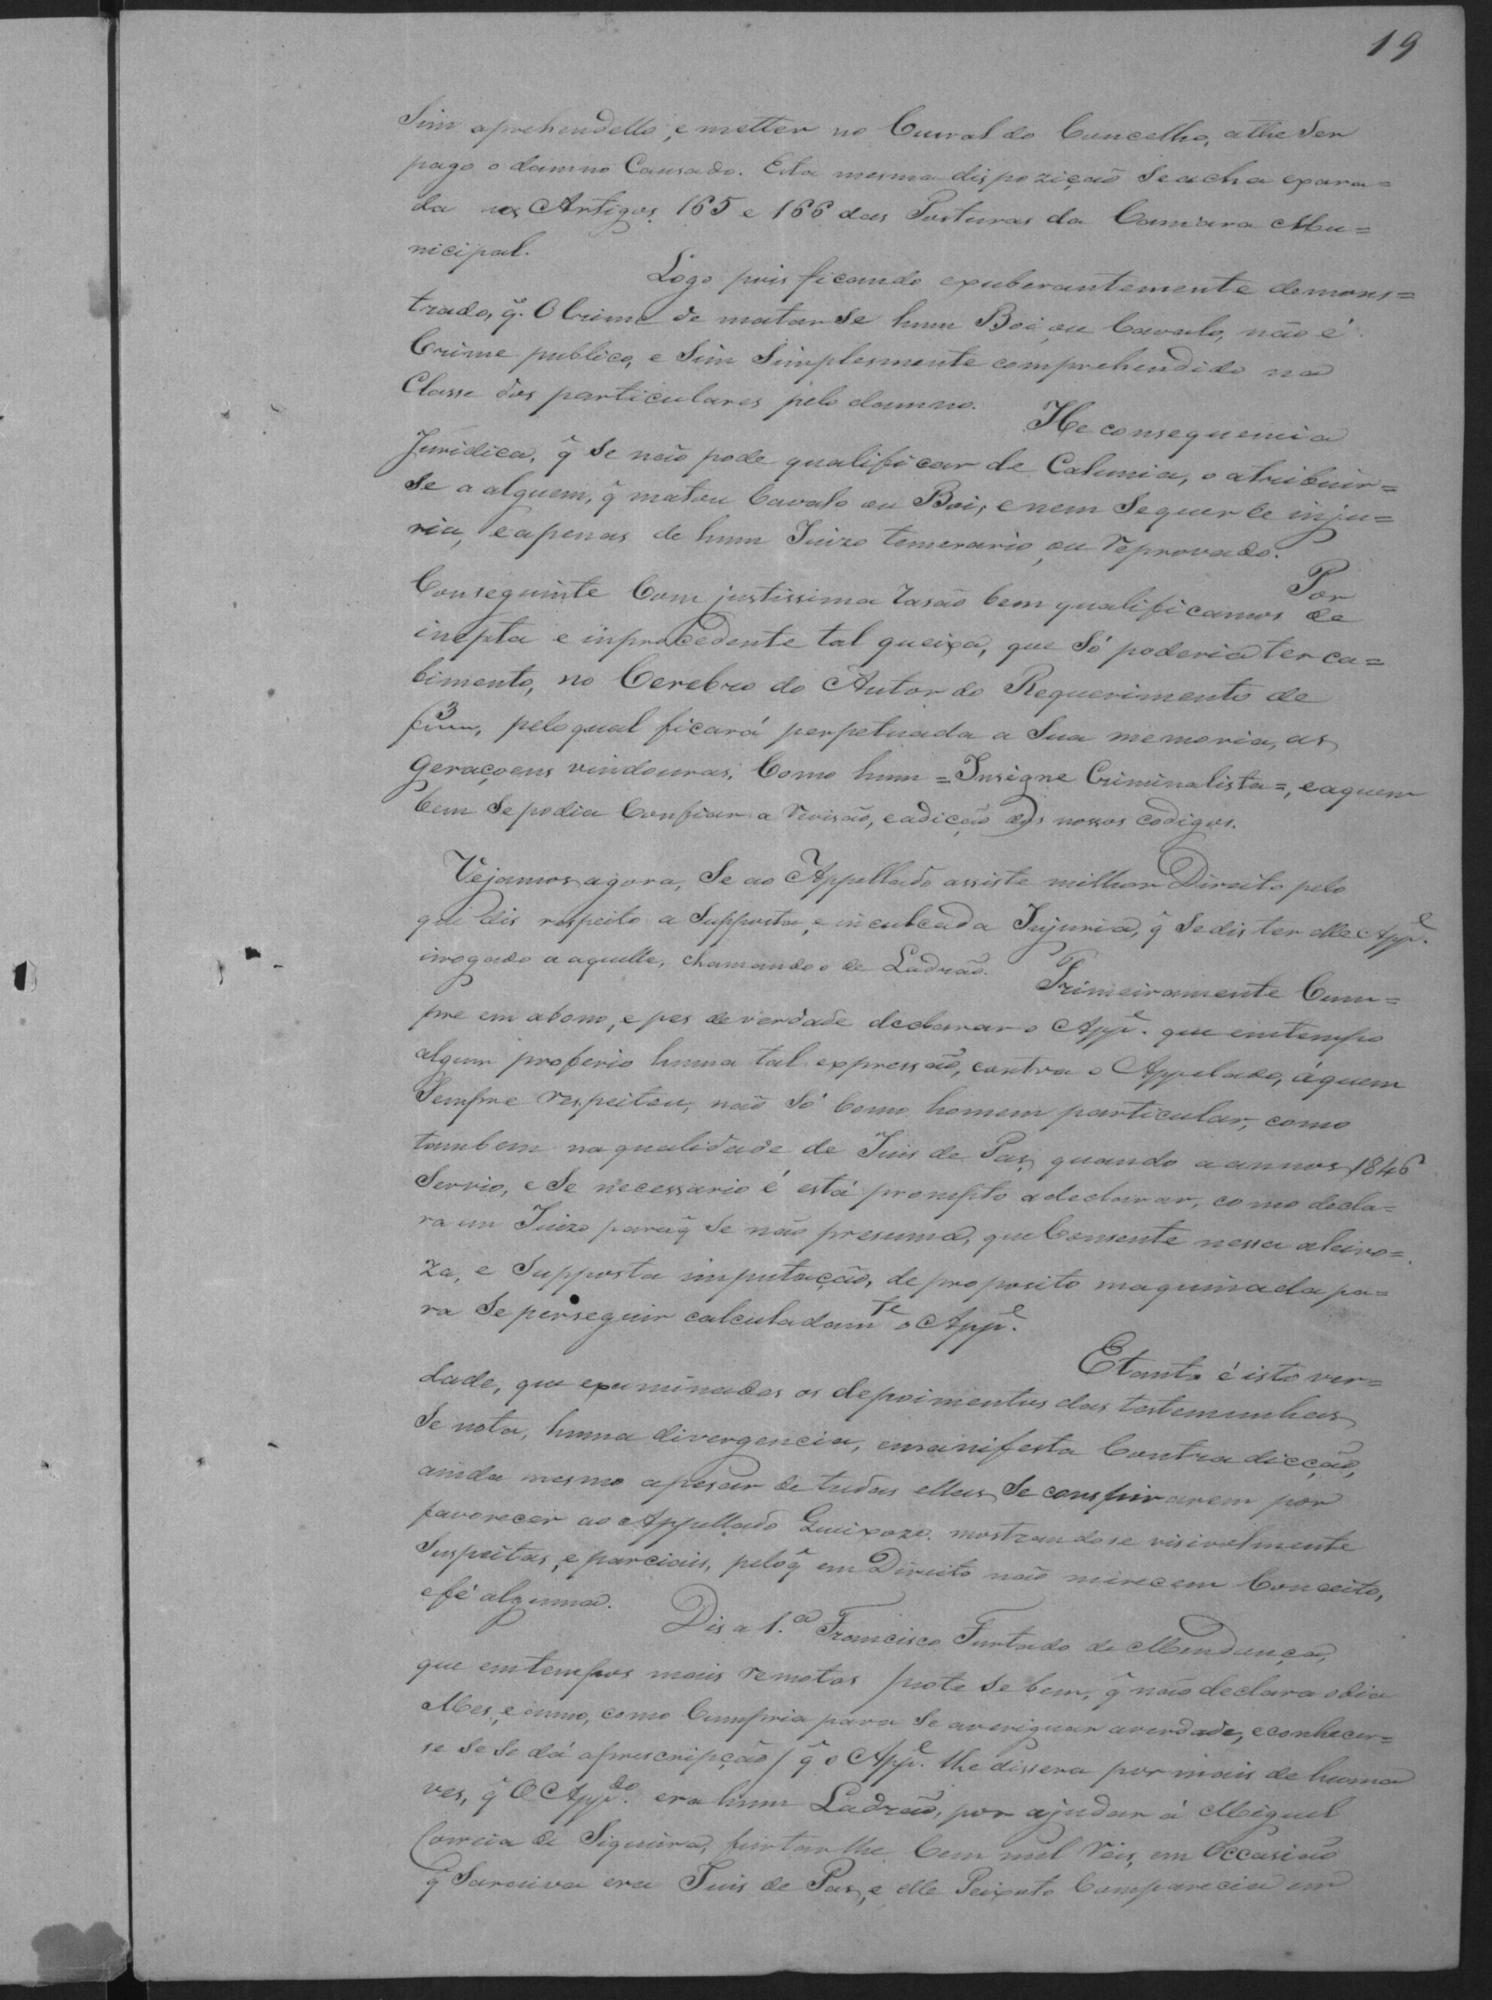 19
Sim aprehendello, e metter no Curral do Concelho, athe ser
pago o damno Causado. Esta mesma dispozição se acha exara=
da nos Artigos 165 e 166 das Posturas da Camara Mu=
nicipal.
Logo pois ficando exuberantemente demons=
trado, q̃. O Crime de matar se hum Boi, ou Cavalo, não é
Crime publico, e Sim Simplesmente comprehendido na
Classe dos particulares pelo damno.
He consequencia
Juridica, q̃ se não pode qualificar de Calunia, o atribuir=
se a alguem, q̃ matou Cavalo ou Boi, e nem sequer de inju=
ria, e apenas de hum Juizo temerario, ou reprovado.
Por
Conseguinte Com justissima rasão bem qualificamos de
inepta e inprocedente tal queixa, que Só poderia ter ca=
bimento, no Cerebro do Autor do Requerimento de
f 3, pelo qual ficará perpetuada a Sua memoria, as
Geraçoens vindouras, Como hum = Insigne Criminalista =, e aquem
bem Se podia Confiar a revisão, e adicção dos nossos codigos.
Vejamos agora, Se ao Appellado assiste milhor Direito pelo
que dis respeito a Supposta, e inculcada Injuria, q̃ Se dis ter elle App.e
irrogado a aquelle, chamando o de Ladrão.
Primeiramente Cum=
pre em abono, e pes de verdade declarar o App.e que em tempo
algum proferio huma tal expressão, contra o Appelado, á quem
Sempre respeitou, não Só Como homem particular, como
tambem na qualidade de Juis de Pas, quando a annos 1846
Servio, e Se necessario é está prompto a declarar, como decla=
ra em Juizo para q̃ Se não presuma, que Consente nessa aleivo=
za, e Supposta imputação, de proposito maquinada pa=
ra Se perseguir calculadam.te o App.e
E tanto é isto ver=
dade, que examinados os depoimentos das testemunhas
Se nota, huma divergencia, e manifesta Contradicção,
ainda mesmo apesar de todas ellas Se conspirarem por
favorecer ao Appellado Queixozo, mostrandose visivelmente
Suspeitas, e parciais, pelo q̃ em Direito não mirecem Conceito,
e fé alguma.
Dis a 1.a Francisco Furtado de Mendonça,
que em tempos mais remotos (note se bem, q̃ não declara o dia
Mes, e anno, como Cumpria para Se averiguar a verdade, e conhecer=
se se se dá a prescripção) q̃ o App.e lhe dissera por mais de huma
ves, q̃ O App.do era hum Ladrão, por ajudar á Miguel
Correia de Siqueira, furtar lhe Cem mil reis, em Occasião
q̃ Saraiva era Juis de Pas, e elle Peixoto Comparecia em